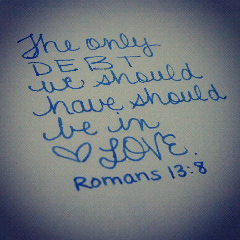 The only
DEBT
we should
have, should
be in
♡ LOVE.
Romans 13:8